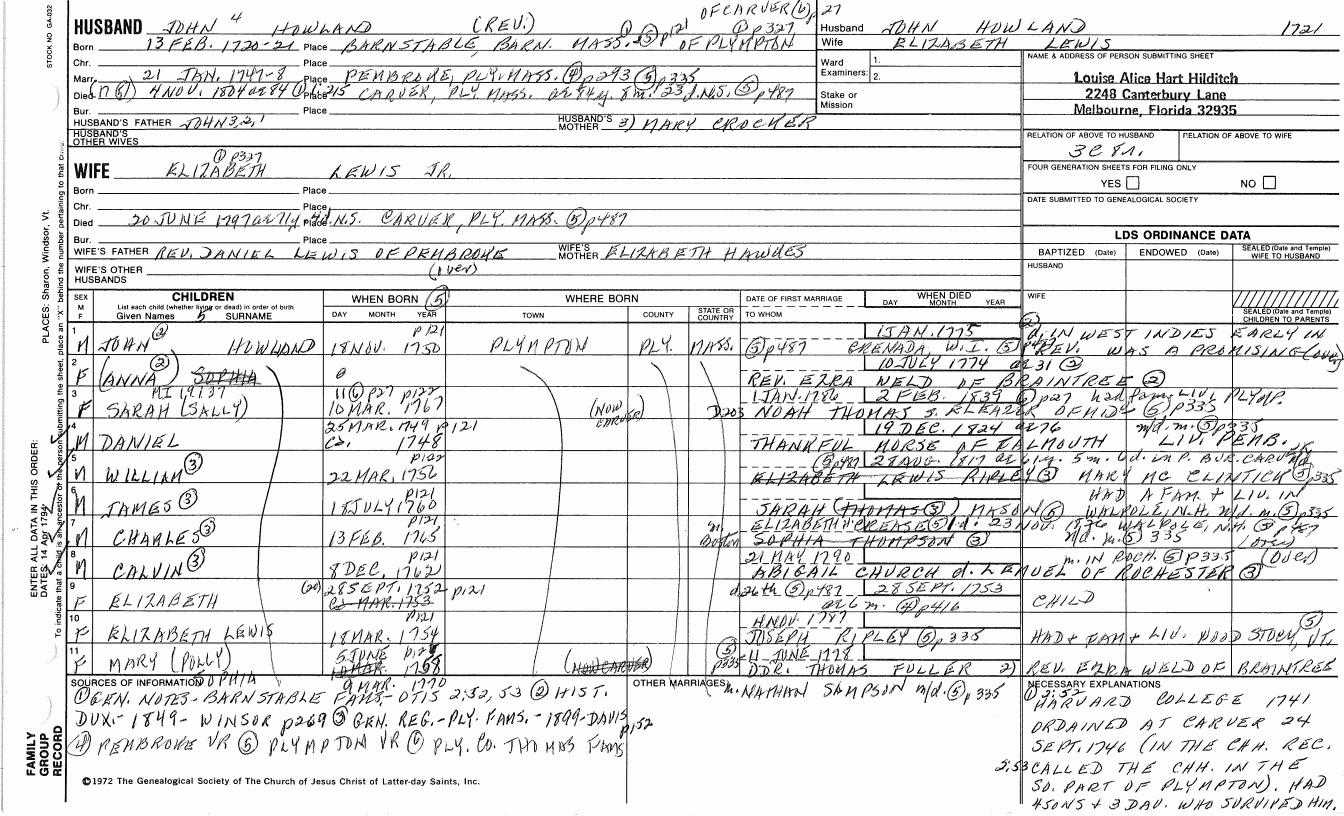 STOCK NO. GA-032
PLACES: Sharon, Windsor, Vt.
ENTER ALL DATA IN THIS ORDER:
DATES: 14 Apr 1794
FAMILY GROUP RECORD
OF CARVER (6) p 27
HUSBAND JOHN 4 HOWLAND (REV.) (1) p327
Born 13 FEB. 1720-21 Place BARNSTABLE, BARN. MASS. (5) p121 OF PLYMPTON
Chr. Place
Marr. 21 JAN. 1747-8 Place PEMBROKE, PLY. MASS. (4) p293 (5) p335
Died 4 NOV. 1804 ae 84 Place CARVER, PLY. MASS. ae 84y. 8m. 23d. N.S. (5) p487
Bur. Place
HUSBAND'S FATHER JOHN 3, 2, 1 HUSBAND'S MOTHER 3) MARY CROCKER
HUSBAND'S OTHER WIVES
(1) p327
WIFE ELIZABETH LEWIS JR.
Born Place
Chr. Place
Died 20 JUNE 1797 Place N.S. CARVER, PLY. MASS. (5) p487
Bur. Place
WIFE'S FATHER REV. DANIEL LEWIS OF PEMBROKE WIFE'S MOTHER ELIZABETH HAWKES
(over)
WIFE'S OTHER HUSBANDS
Husband JOHN HOWLAND 1721
Wife ELIZABETH LEWIS
Ward Examiners: 1.
2.
Stake or Mission
NAME & ADDRESS OF PERSON SUBMITTING SHEET
Louise Alice Hart Hilditch
2248 Canterbury Lane
Melbourne, Florida 32935
RELATION OF ABOVE TO HUSBAND RELATION OF ABOVE TO WIFE
3C 8r.
FOUR GENERATION SHEETS FOR FILING ONLY
YES NO
DATE SUBMITTED TO GENEALOGICAL SOCIETY
LDS ORDINANCE DATA
BAPTIZED (Date) ENDOWED (Date) SEALED (Date and Temple) WIFE TO HUSBAND
HUSBAND
WIFE
SEALED (Date and Temple) CHILDREN TO PARENTS
SEX M F CHILDREN WHEN BORN (5) WHERE BORN DATE OF FIRST MARRIAGE WHEN DIED
List each child (whether living or dead) in order of birth. DAY MONTH YEAR TOWN COUNTY STATE OR COUNTRY TO WHOM DAY MONTH YEAR
Given Names SURNAME
1 p121 1 JAN. 1775 d. IN WEST INDIES EARLY IN
M JOHN (2) HOWLAND 18 NOV. 1750 PLYMPTON PLY. MASS. (5) p487 GRENADA W.I. (5) REV. WAS A PROMISING (over)
2 10 JULY 1774 ae 31 (2)
F (ANNA) (2) SOPHIA REV. EZRA WELD OF BRAINTREE (2)
3 11 (6) p27 p122 1 JAN. 1786 2 FEB. 1839 (6) p27 had fam. LIV. PLYMP.
F SARAH (SALLY) 10 MAR. 1767 (NOW CARVER) NOAH THOMAS s. ELEAZER OF MID. (5) p335
4 25 MAR. 1749 p121 19 DEC. 1824 ae 76 m/d. m. (5) p335
M DANIEL ca. 1748 THANKFUL MORSE OF FALMOUTH LIV. PEMB.
5 p122 (5) p487 28 AUG. 1817
M WILLIAM (3) 22 MAR. 1756 ELIZABETH LEWIS RIPLEY (3) MARY MC CLINTICK (5) p335
6 p121 HAD A FAM. + LIV. IN
M JAMES (3) 18 JULY 1760 SARAH (THOMAS (3)) MASON (5) WALPOLE, N.H. m/d. m. (5) p335
7 p121 m. Boston ELIZABETH CREASE (5) d. 23 NOV. WALPOLE, N.H.
M CHARLES (3) 13 FEB. 1765 SOPHIA THOMPSON (3) m/d. m. (5) 335 (over)
8 p121 21 MAY 1790 m. IN ROCH. (5) p335 (over)
M CALVIN (3) 8 DEC. 1762 ABIGAIL CHURCH d. LEMUEL OF ROCHESTER (3)
9 (20) 28 SEPT. 1752 p121 d. 26th (5) p487 28 SEPT. 1753
F ELIZABETH MAR. 1753 ae 6 m. (4) p416 CHILD
10 p121 NOV. 1787
F ELIZABETH LEWIS 18 MAR. 1754 JOSEPH RIPLEY (5) p335 HAD + FAM + LIV. WOOD STOCK, VT. (5)
11 5 JUNE p121 (5) p335 11 JUNE 1778
F MARY (POLLY) MAR. 1758 (NOW CARVER) DR. THOMAS FULLER 2) REV. EZRA WELD OF BRAINTREE
SOPHIA 9 MAR. 1770
SOURCES OF INFORMATION OTHER MARRIAGES m. NATHAN SAMPSON m/d. (5) p335
(1) GEN. NOTES - BARNSTABLE FAMS. - OTIS 2:52, 53 (2) HIST.
DUX. - 1849 - WINSOR p269 (3) GEN. REG. - PLY. FAMS. - 1899 - DAVIS p152
(4) PEMBROKE VR (5) PLYMPTON VR (6) PLY. CO. THOMAS FAMS
NECESSARY EXPLANATIONS
(1) 2:52
HARVARD COLLEGE 1741
ORDAINED AT CARVER 24
SEPT. 1746 (IN THE CHH. REC.
2:53 CALLED THE CHH. IN THE
SO. PART OF PLYMPTON). HAD
4 SONS + 3 DAU. WHO SURVIVED HIM.
©1972 The Genealogical Society of The Church of Jesus Christ of Latter-day Saints, Inc.